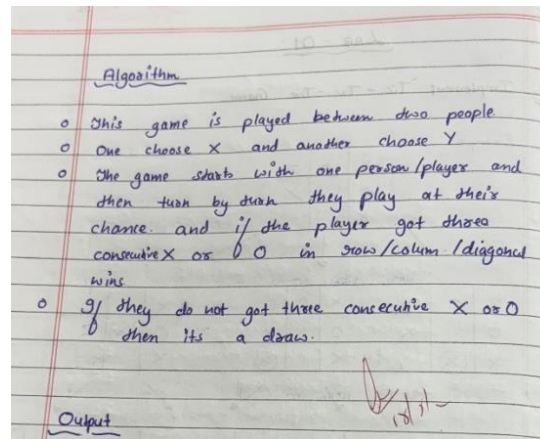 Algorithm
o This game is played between two people
o One choose X and another choose Y
o The game starts with one person/player and
then turn by turn they play at their
chance. and if the player got three
consecutive X or O in row/colum/diagonal
wins
o If they do not got three consecutive X or O
then its a draw.
Output